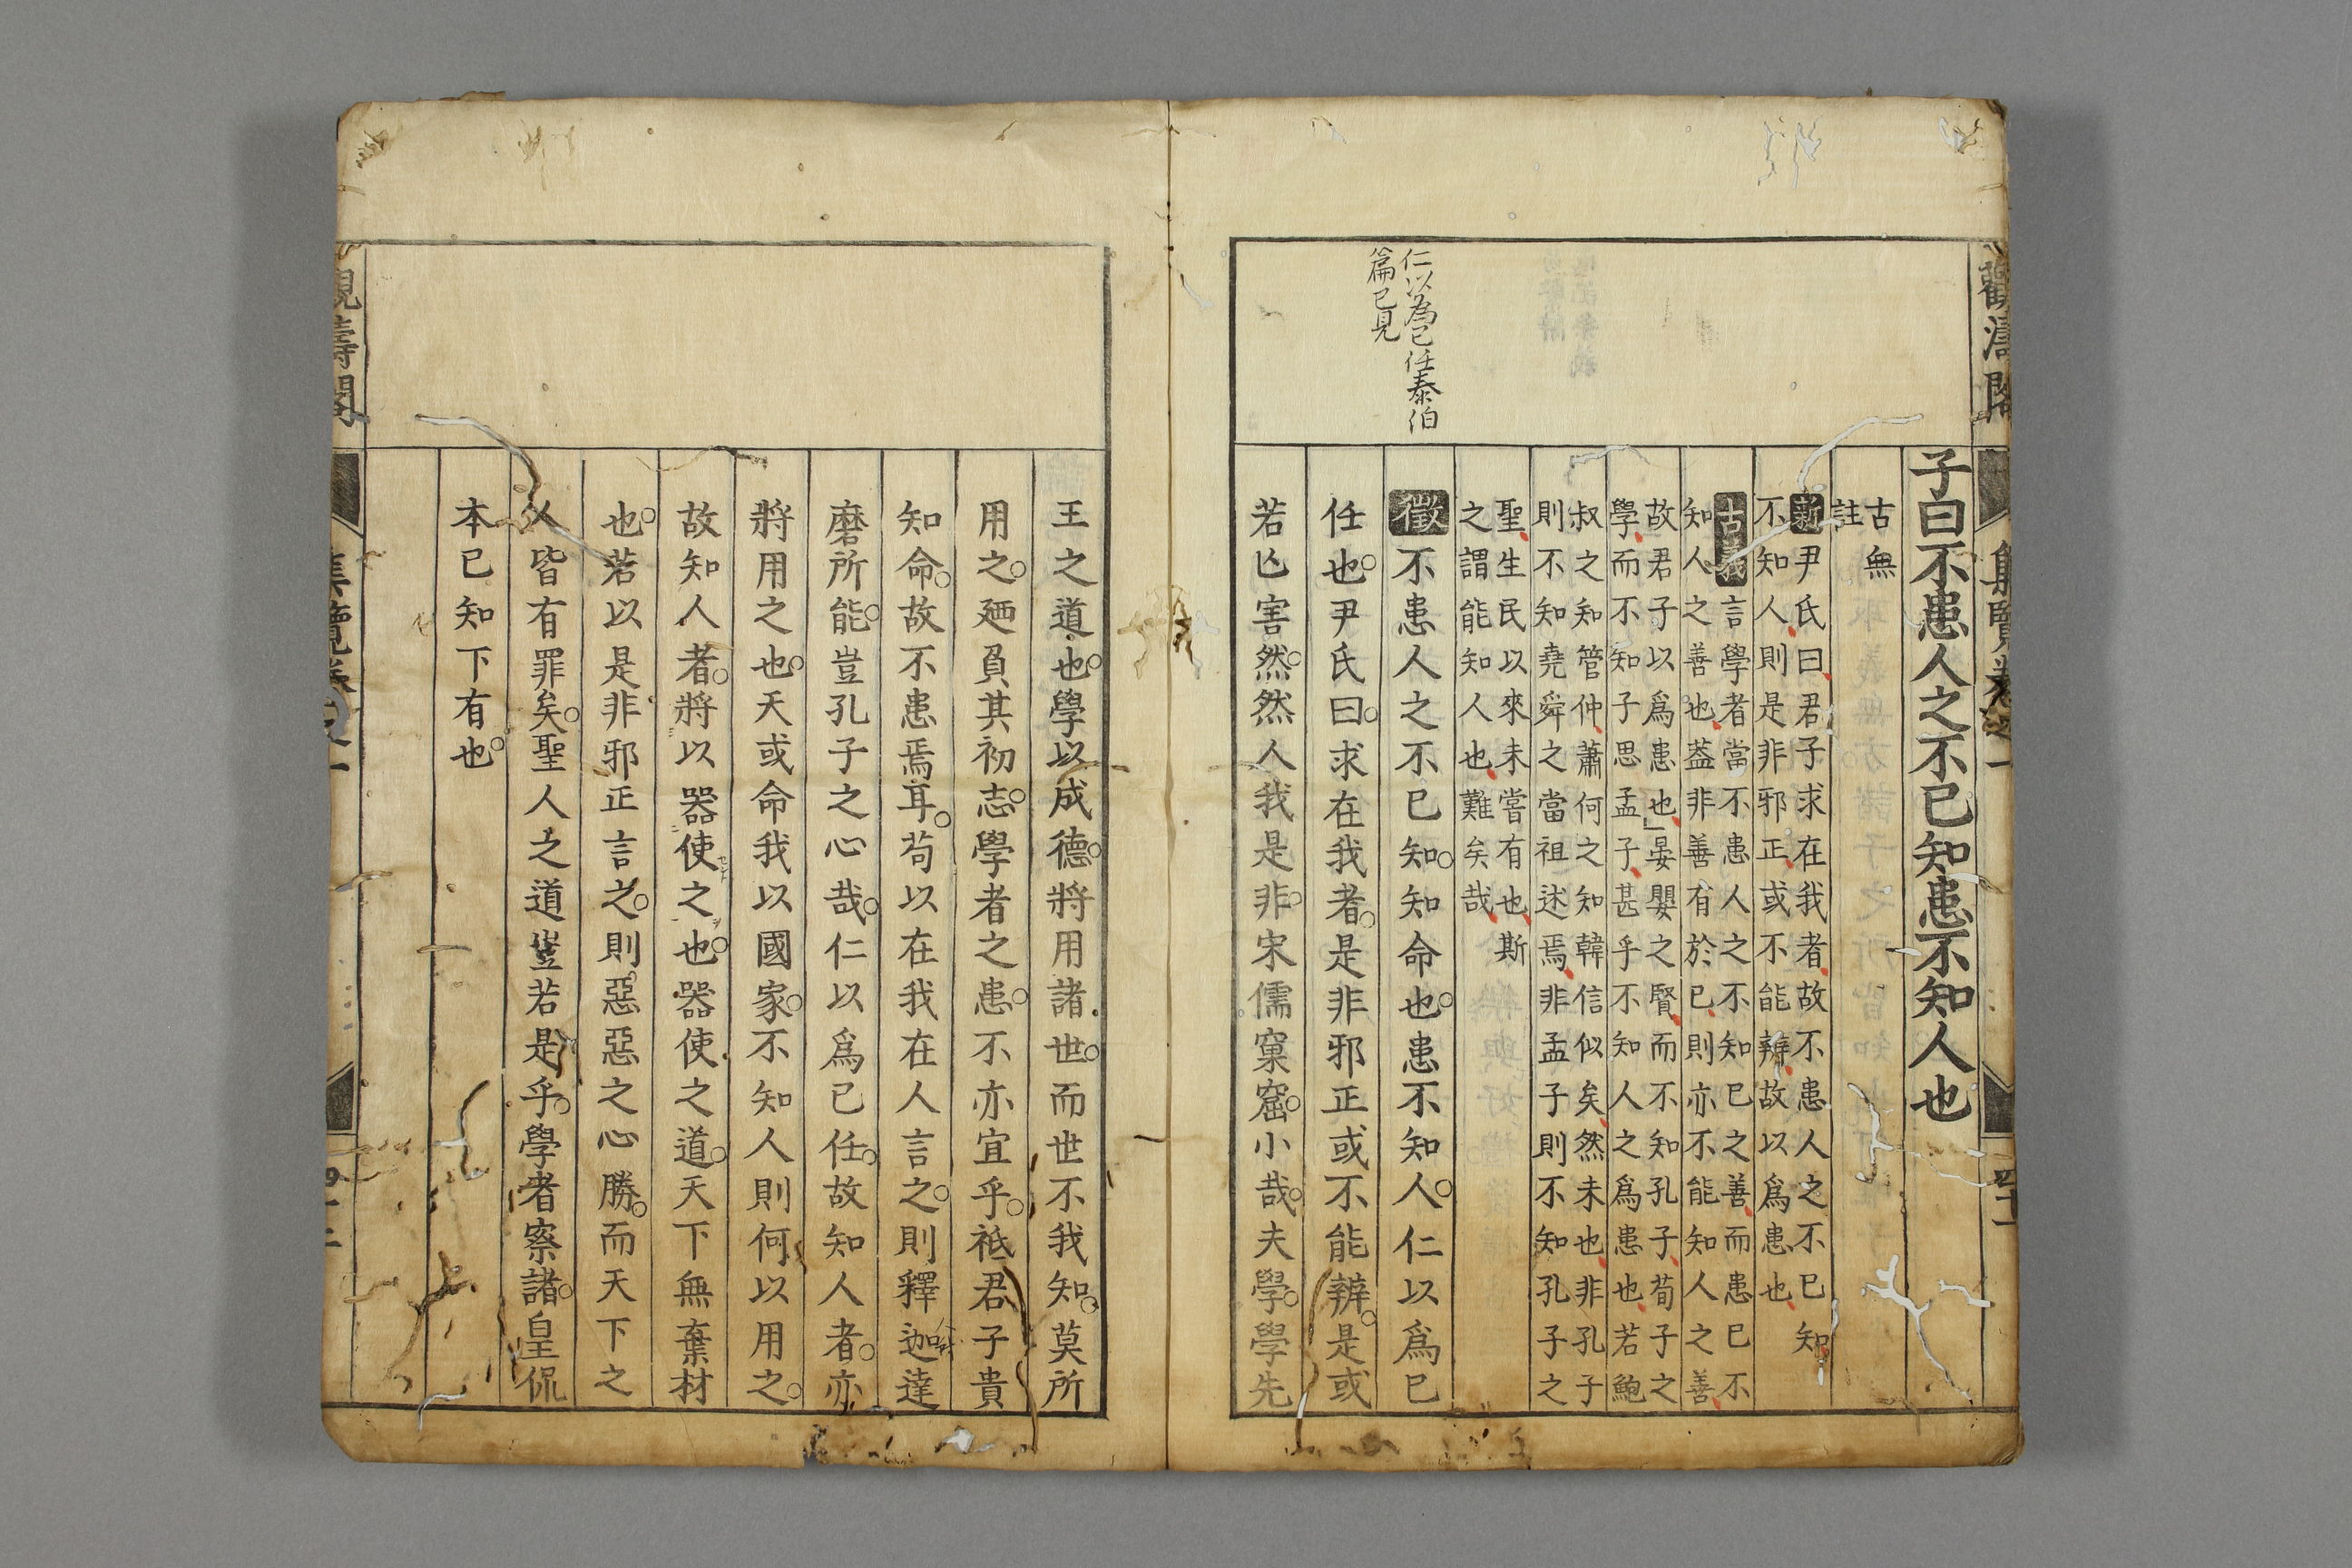 仁以為己任泰伯
篇已見
子曰不患人之不己知患不知人也
古無
註
新尹氏曰君子求在我者故不患人之不己知
不知人則是非邪正或不能辨故以爲患也
古義言學者當不患人之不知己之善而患己不
知人之善也蓋非善有於己則亦不能知人之善
故君子以爲患也晏嬰之賢而不知孔子荀子之
學而不知子思孟子甚乎不知人之爲患也若鮑
叔之知管仲蕭何之知韓信似矣然未也非孔子
則不知堯舜之當祖述焉非孟子則不知孔子之
聖生民以來未嘗有也斯
之謂能知人也難矣哉
徵不患人之不己知知命也患不知人仁以爲己
任也尹氏曰求在我者是非邪正或不能辨是或
若亾害然然人我是非宋儒窠窟小哉夫學學先
王之道也學以成德將用諸世而世不我知莫所
用之廼負其初志學者之患不亦宜乎祗君子貴
知命故不患焉耳苟以在我在人言之則釋迦達
磨所能豈孔子之心哉仁以爲己任故知人者亦
將用之也天或命我以國家不知人則何以用之
故知人者將以器使之也器使之道天下無棄材
也若以是非邪正言之則惡惡之心勝而天下之
人皆有罪矣聖人之道豈若是乎學者察諸皇侃
本已知下有也